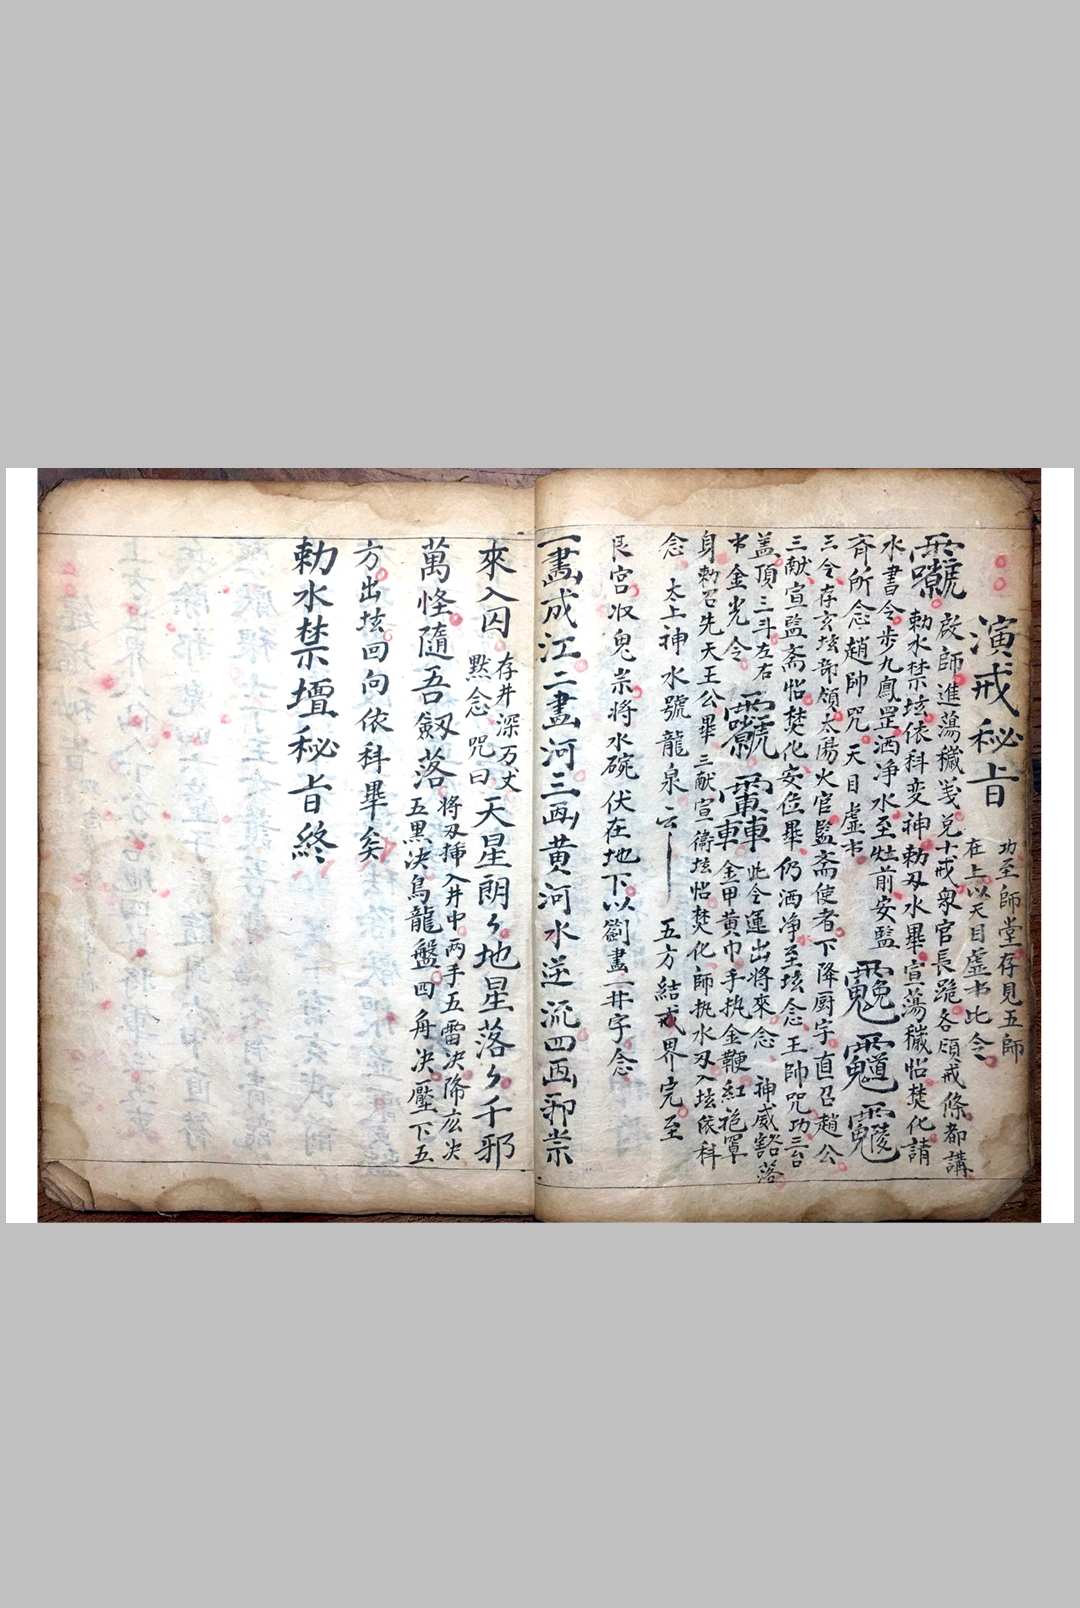 演戒秘旨
功至師堂存見五師
在上以天目虚书此令
啟師進蕩穢淺兑十戒衆官長跪各頒戒條都講
勅水禁坛依科变神勅刃水畢宣蕩穢帖焚化請
水書令步九鳳罡洒净水至灶前安監
斉所念趙帥咒天目虚书
三令存玄坛部領太陽火官監斋使者下降厨宇直召趙公
三献宣監斋帖焚化安位畢仍洒净至坛念王帥咒功三台
盖頂三斗左右
此令運出將來念神威豁落
书金光令
金甲黄巾手执金鞭紅袍罩
身勅召先天王公畢三献宣衛坛帖焚化師执水刃入坛依科
念太上神水號龍泉云
五方結戒界完至
艮宫收鬼祟將水碗伏在地下以劍畫一井字念
一畵成江二畫河三画黄河水逆流四画邪祟
來入囚
存井深万丈
默念咒曰
天星朗々地星落々千邪
萬怪隨吾劔刃落
將刃揷入井中两手五雷决降広决
五黑决烏龍盤四角决壓下五
方出坛回向依科畢矣
勅水禁壇秘旨終